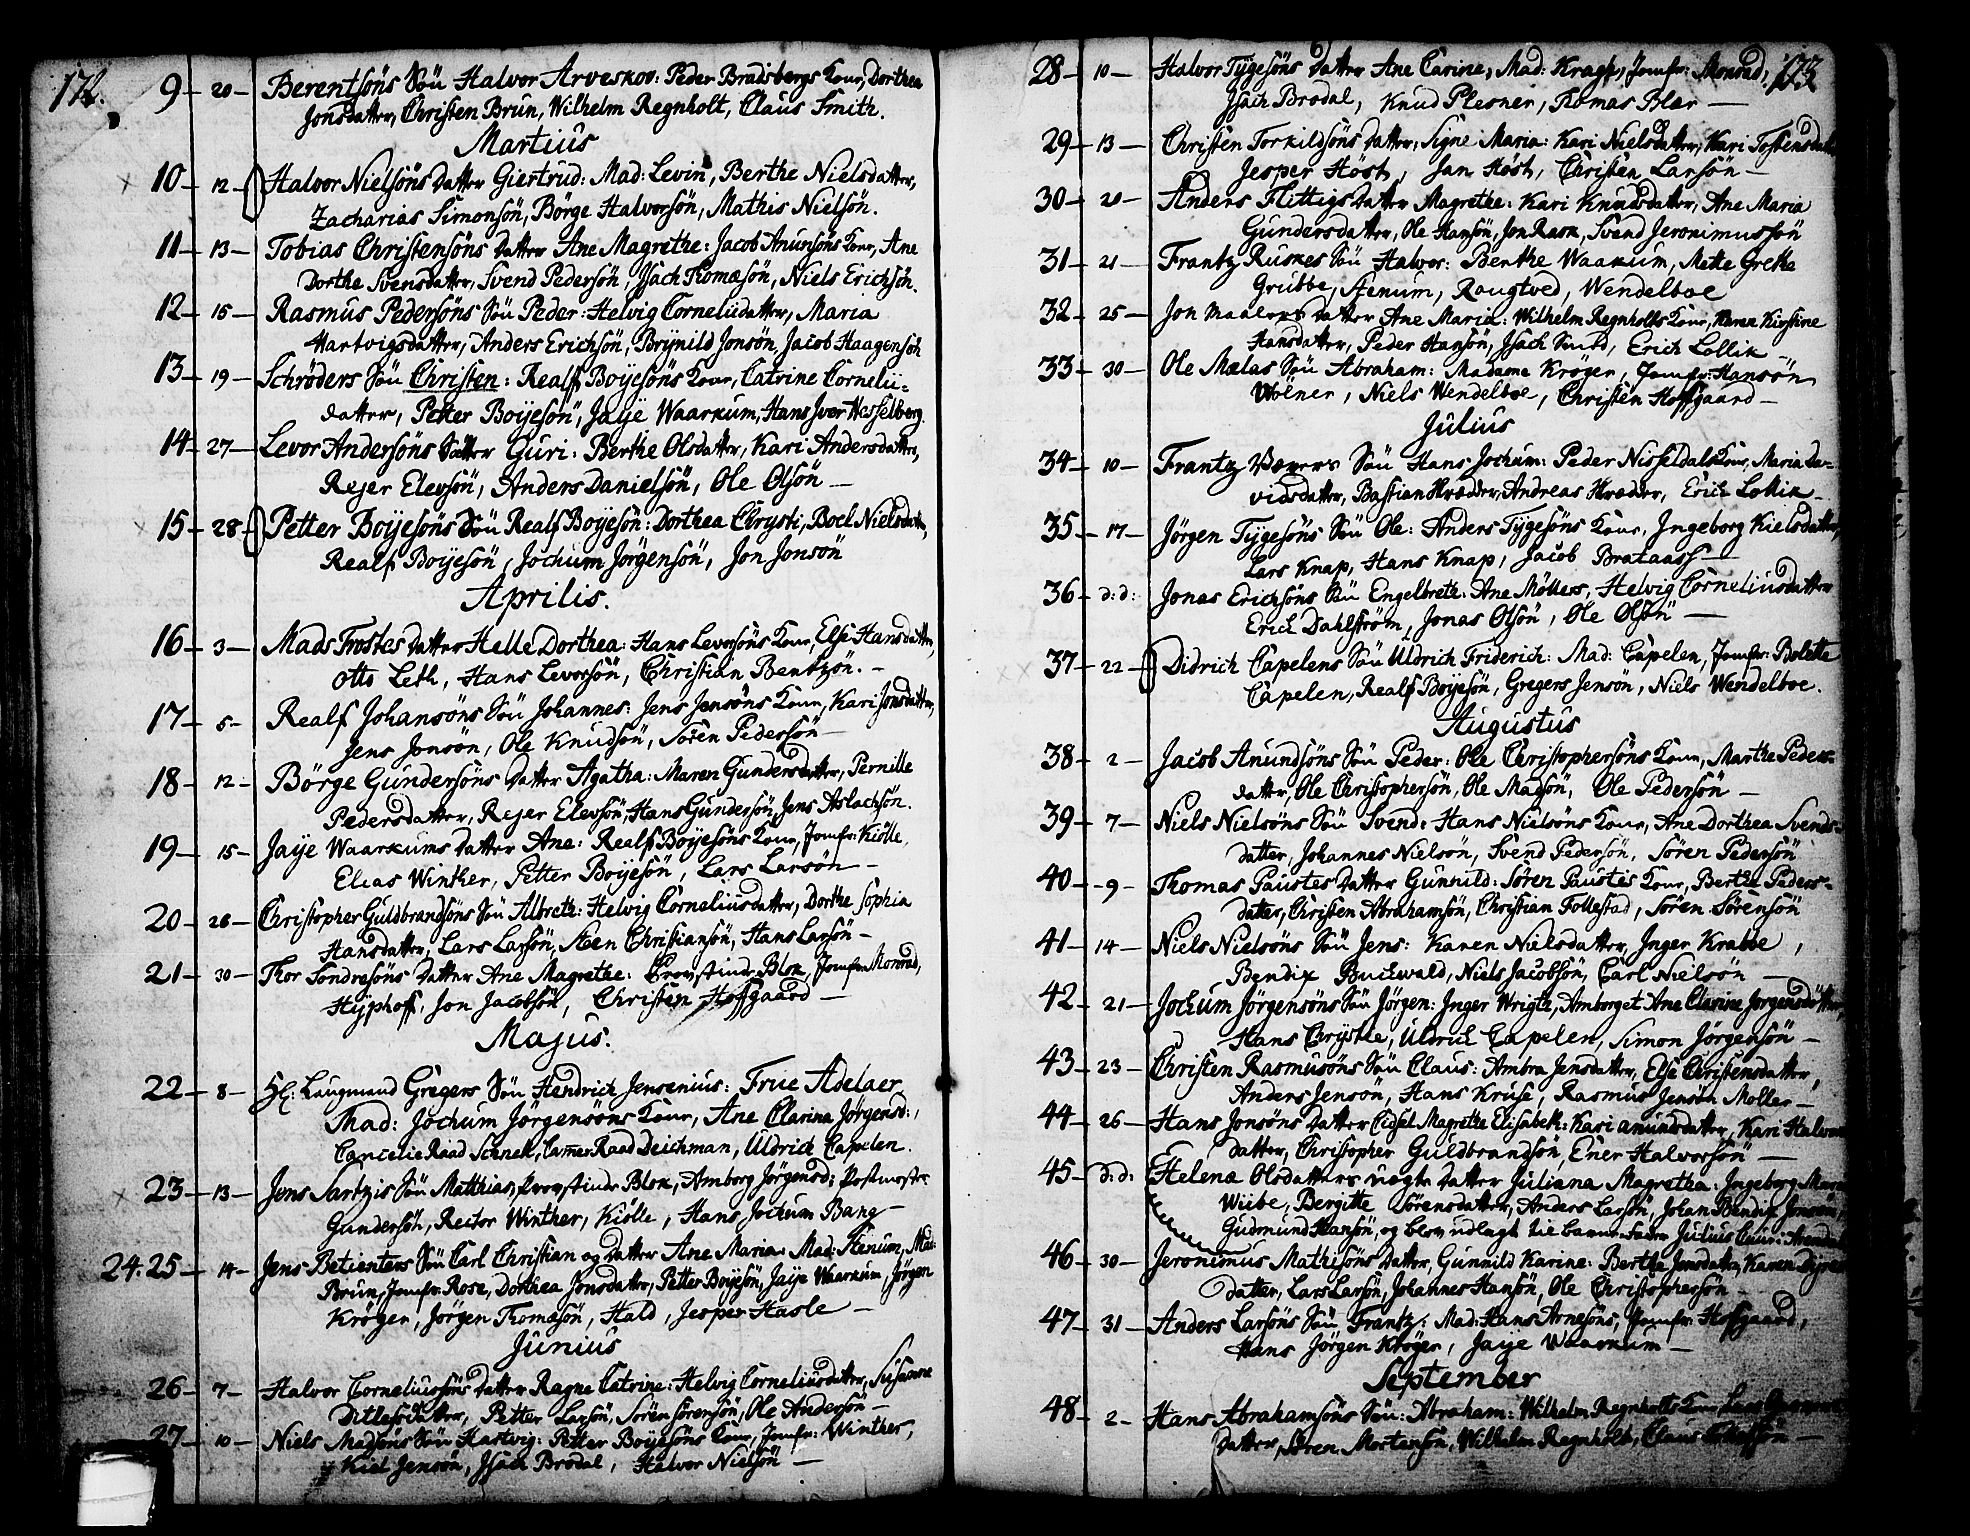 172.
9 – 20 – Berentsöns Sön Halvor Arveskov: Peder Bradsbergs Konr, Dorthea
Jonsdatter, Christen Brun, Wilhelm Regnholt, Claus Smith.
Martius
10 – 12 – Halvor Nielsöns Datter Giertrud: Mad: Levin, Berthe Nielsdatter,
Zacharias Simonsön, Börge Halvorsön, Mathis Nielsön.
11 – 13 – Tobias Christensöns Datter Ane Magrethe: Jacob Anunsöns Konr, Ane
Dorthe Svensdatter, Svend Pedersön, Jsach Thomasön, Niels Erichsön.
12 – 15 – Rasmus Pedersöns Sön Peder: Helvig Corneliidatter, Maria
Hartvigsdatter, Anders Erichsön, Brynild Jonsön, Jacob Haagensön
13 – 19 – Schröders Sön Christen: Realf Boyesöns Konr, Catrine Cornelii-
datter, Petter Boyesön, Jaye Waarkum, Hans Jver Hesselberg.
14 – 27 – Levor Andersöns Datter Guri: Berthe Olsdatter, Kari Andersdatter,
Rejer Elevsön, Anders Danielsön, Ole Olsön –
15 – 28 – Petter Boyesöns Sön Realf Boyesön: Dorthea Chrysti, Boel Nielsdatter,
Realf Boyesön, Jochum Jörgensön, Jon Jonsön
Aprilis.
16 – 3 – Mads Trostes Datter Helle Dorthea: Hans Levorsöns Konr, Else Hansdatter,
Otto Leth, Hans Levorsön, Christian Bentzön. –
17 – 5 – Realf Johansöns Sön Johannes: Jens Jensöns Konr, Kari Jonsdatter,
Jens Jonsön, Ole Knudsön, Sören Pedersön –
18 – 12 – Börge Gundersöns Datter Agatha: Maren Gundersdatter, Pernille
Pedersdatter, Rejer Elevsön, Hans Gundersön, Jens Aslachsön.
19 – 15 – Jaye Waarkums Datter Ane: Realf Boyesöns Konr, Jomfr: Kiölle,
Elias Winther, Petter Boyesön, Lars Larsön –
20 – 26 – Christopher Guldbrandsöns Sön Albreth: Helvig Corneliusdatter, Dorthe Sophia
Hansdatter, Lars Larsön, Steen Christiansön, Hans Larsön –
21 – 30 – Thor Sondresöns Datter Ane Magrethe: Provstinde Blok, Jomfr Monrad,
Hyphoff, Jon Jacobsön, Christen Hofgaard –
Majus.
22 – 8 – Sl: Laugmand Gregers Sön Hendrich Jensenius: Frue Adelaer,
Mad: Jochum Jörgensöns Konr, Ane Clarina Jörgensd:,
Cancelie Raad Schnell, Camer Raad Deichman, Uldrich Capelen.
23 – 13 – Jens Sartzis Sön Matthias, Provstinde Blok, Amborg Jörgensd: Postmester
Gundersön, Rector Winther, Kiölle, Hans Jochum Bang –
24. 25 – 14 – Jens Betientes Sön Carl Christian og Datter Ane Maria: Mad: Stenum, Mad:
Brun, Jomfr: Rose, Dorthea Jonsdatter, Petter Boyesön, Jaye Waarkum, Jörgen
Kröger, Jörgen Thomasön, Hald, Jesper Hasle –
Junius
26 – 7 – Halvor Corneliussöns Datter Ragne Catrine: Helvig Corneliusdatter, Susanne
Ditlefsdatter, Petter Larsön, Sören Sörensön, Ole Andersön –
27 – 10 – Niels Madsöns Sön Hartvig: Petter Boyesöns Konr, Jomfr: Winther,
Kield Jensön, Jsach Brodal, Halvor Nielsön –
173
28 – 10 – Halvor Tygesöns Datter Ane Carine, Mad: Kragh, Jomfr: Monrad,
Jsach Brodal, Knud Plesner, Thomas Blar –
29 – 13 – Christen Torkildsöns Datter, Signe Maria: Kari Nielsdatter, Kari Tostensdatter
Jesper Höst, Jan Höst, Christen Larsön –
30 – 20 – Anders Flittigs Datter Magrethe: Kari Knudsdatter, Ane Maria
Gundersdatter, Ole Hansön, Jon Rask, Svend Jeronimussön
31 – 21 – Frantz Ruskes Sön Halvor: Berthe Waarkum, Mette Grethe
Grubbe, Stenum, Rougtved, Wendelboe
32 – 25 – Jon Datter Ane Maria: Wilhelm Regnholts Konr, Karen Kirstine
Hansdatter, Peder Hansön, Jsach Smid, Erich Lollik –
33 – 30 – Ole Mælas Sön Abraham: Madame Kröger, Jomfr: Hansön
Wölner, Niels Wendelboe, Christen Hofgaard –
Julius
34 – 10 – Frantz Sön Hans Jochum: Peder Nisseldals Konr, Maria Da-
vidsdatter, Bastian Skrædder, Andreas Skrædder, Erich Lollik –
35 – 17 – Jörgen Tygesöns Sön Ole: Anders Tygesöns Konr, Ingeborg Kielsdatter,
Lars Knap, Hans Knap, Jacob Brataass –
36 – d:d: Jonas Erichsöns Sön Engelbreth: Ane Möllers, Helvig Corneliusdatter
Erich Dahlström, Jonas Olsön, Ole Olsön –
37 – 22 – Didrich Capelens Sön Uldrich Friderich: Mad: Capelen, Jomfr: Bolette
Capelen, Realf Boyesön, Gregers Jensön, Niels Wendelboe.
Augustus
38 – 2 – Jacob Anundsöns Sön Peder: Ole Christophersöns Konr, Marthe Peders-
datter, Ole Christophersön, Ole Madsön, Ole Pedersön –
39 – 7 – Niels Nielsöns Sön Svend: Hans Nielsöns Konr, Ane Dorthea Svends-
datter, Johannes Nielsön, Svend Pedersön, Sören Pedersön
40 – 9 – Thomas Paustes Datter Gunnild: Sören Paustes Konr, Berthe Peders-
datter, Christen Abrahamsön, Christian Follestad, Sören Sörensön
41 – 14 – Niels Nielsöns Sön Jens: Karen Nielsdatter, Inger Krabbe,
Bendix Buchwald, Niels Jacobsön, Carl Nielsön –
42 – 21 – Jochum Jörgensöns Sön Jörgen: Inger Wrigth, Amborget Ane Clarine Jörgensdötter,
Hans Chrystie, Uldrich Capelen, Simon Jörgensön –
43 – 23 – Christen Rasmusöns Sön Claus: Ambra Jensdatter, Else Christensdatter,
Anders Jensön, Hans Kruse, Rasmus Jensön Möller –
44 – 26 – Hans Jonsöns Datter Cidsel Magrethe Elisabeth: Kari Amunsdatter, Kari Halvors
datter, Christopher Guldbrandsön, Ener Halvorsön –
45 – d:d: Helena Olsdatters uægte Datter Juliana Magretha: Ingeborg Maria
Wiibe, Bergitte Sörensdatter, Anders Larsön, Johan Bendix Jonsön,
Gudmund Hansön, og blev udlagt til barne Fader Julius
46 – 30 – Jeronimus Mathisöns Datter, Gunnild Karine: Berthe Jonsdatter, Karen Dyres
datter, Lars Larsön, Johannes Hansön, Ole Christophersön –
47 – 31 – Anders Larsöns Sön Frantz: Mad: Hans Arnesöns, Jomfr: Hofgaard,
Hans Jörgen Kröger, Jaye Waarkum –
September
48 – 2 – Hans Abrahamsöns Sön: Abraham: Wilhelm Regnholts Konr
datter, Sören Mortensön, Wilhelm Regnholt, Claus